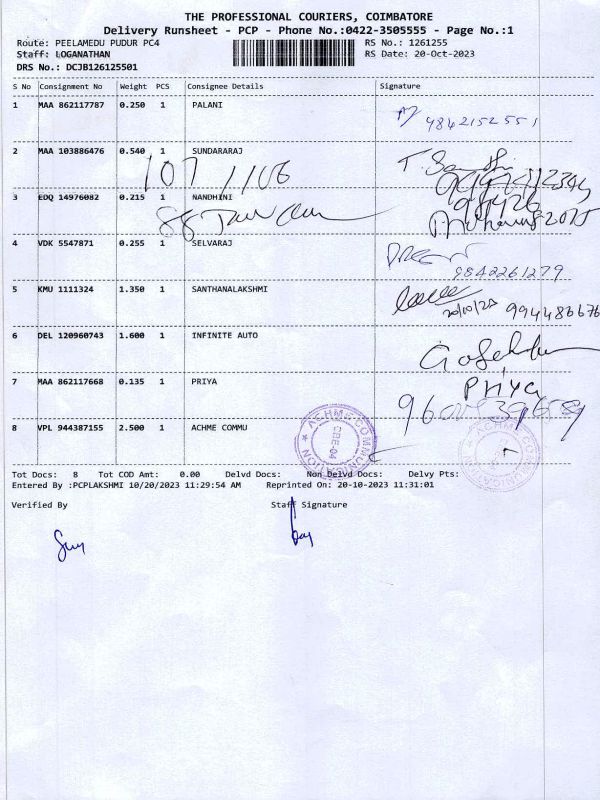 THE PROFESSIONAL COURIERS, COIMBATORE
Delivery Runsheet - PCP - Phone No.:0422-3505555 - Page No.:1
Route: PEELAMEDU PUDUR PC4 RS No.: 1261255
Staff: LOGANATHAN RS Date: 20-Oct-2023
DRS No.: DCJB126125501
S No Consignment No Weight PCS Consignee Details Signature
1 MAA 862117787 0.250 1 PALANI
9842152551
2 MAA 103886476 0.540 1 SUNDARARAJ
107 1106
3 EDQ 14976082 0.215 1 NANDHINI
4 VDK 5547871 0.255 1 SELVARAJ
9842261279
5 KMU 1111324 1.350 1 SANTHANALAKSHMI
20/10/23 994486676
6 DEL 120960743 1.600 1 INFINITE AUTO
7 MAA 862117668 0.135 1 PRIYA
PRIYA
8 VPL 944387155 2.500 1 ACHME COMMU
ACHME COMMUNICATION
CBE-04
Tot Docs: 8 Tot COD Amt: 0.00 Delvd Docs: Non Delvd Docs: Delvy Pts:
Entered By :PCPLAKSHMI 10/20/2023 11:29:54 AM Reprinted On: 20-10-2023 11:31:01
Verified By Staff Signature